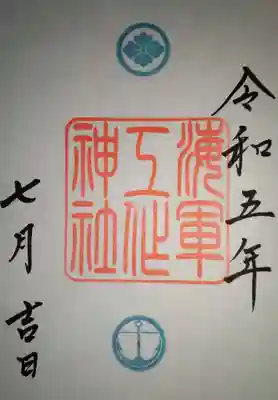 令和五年
海軍
工作
神社
七月 吉日